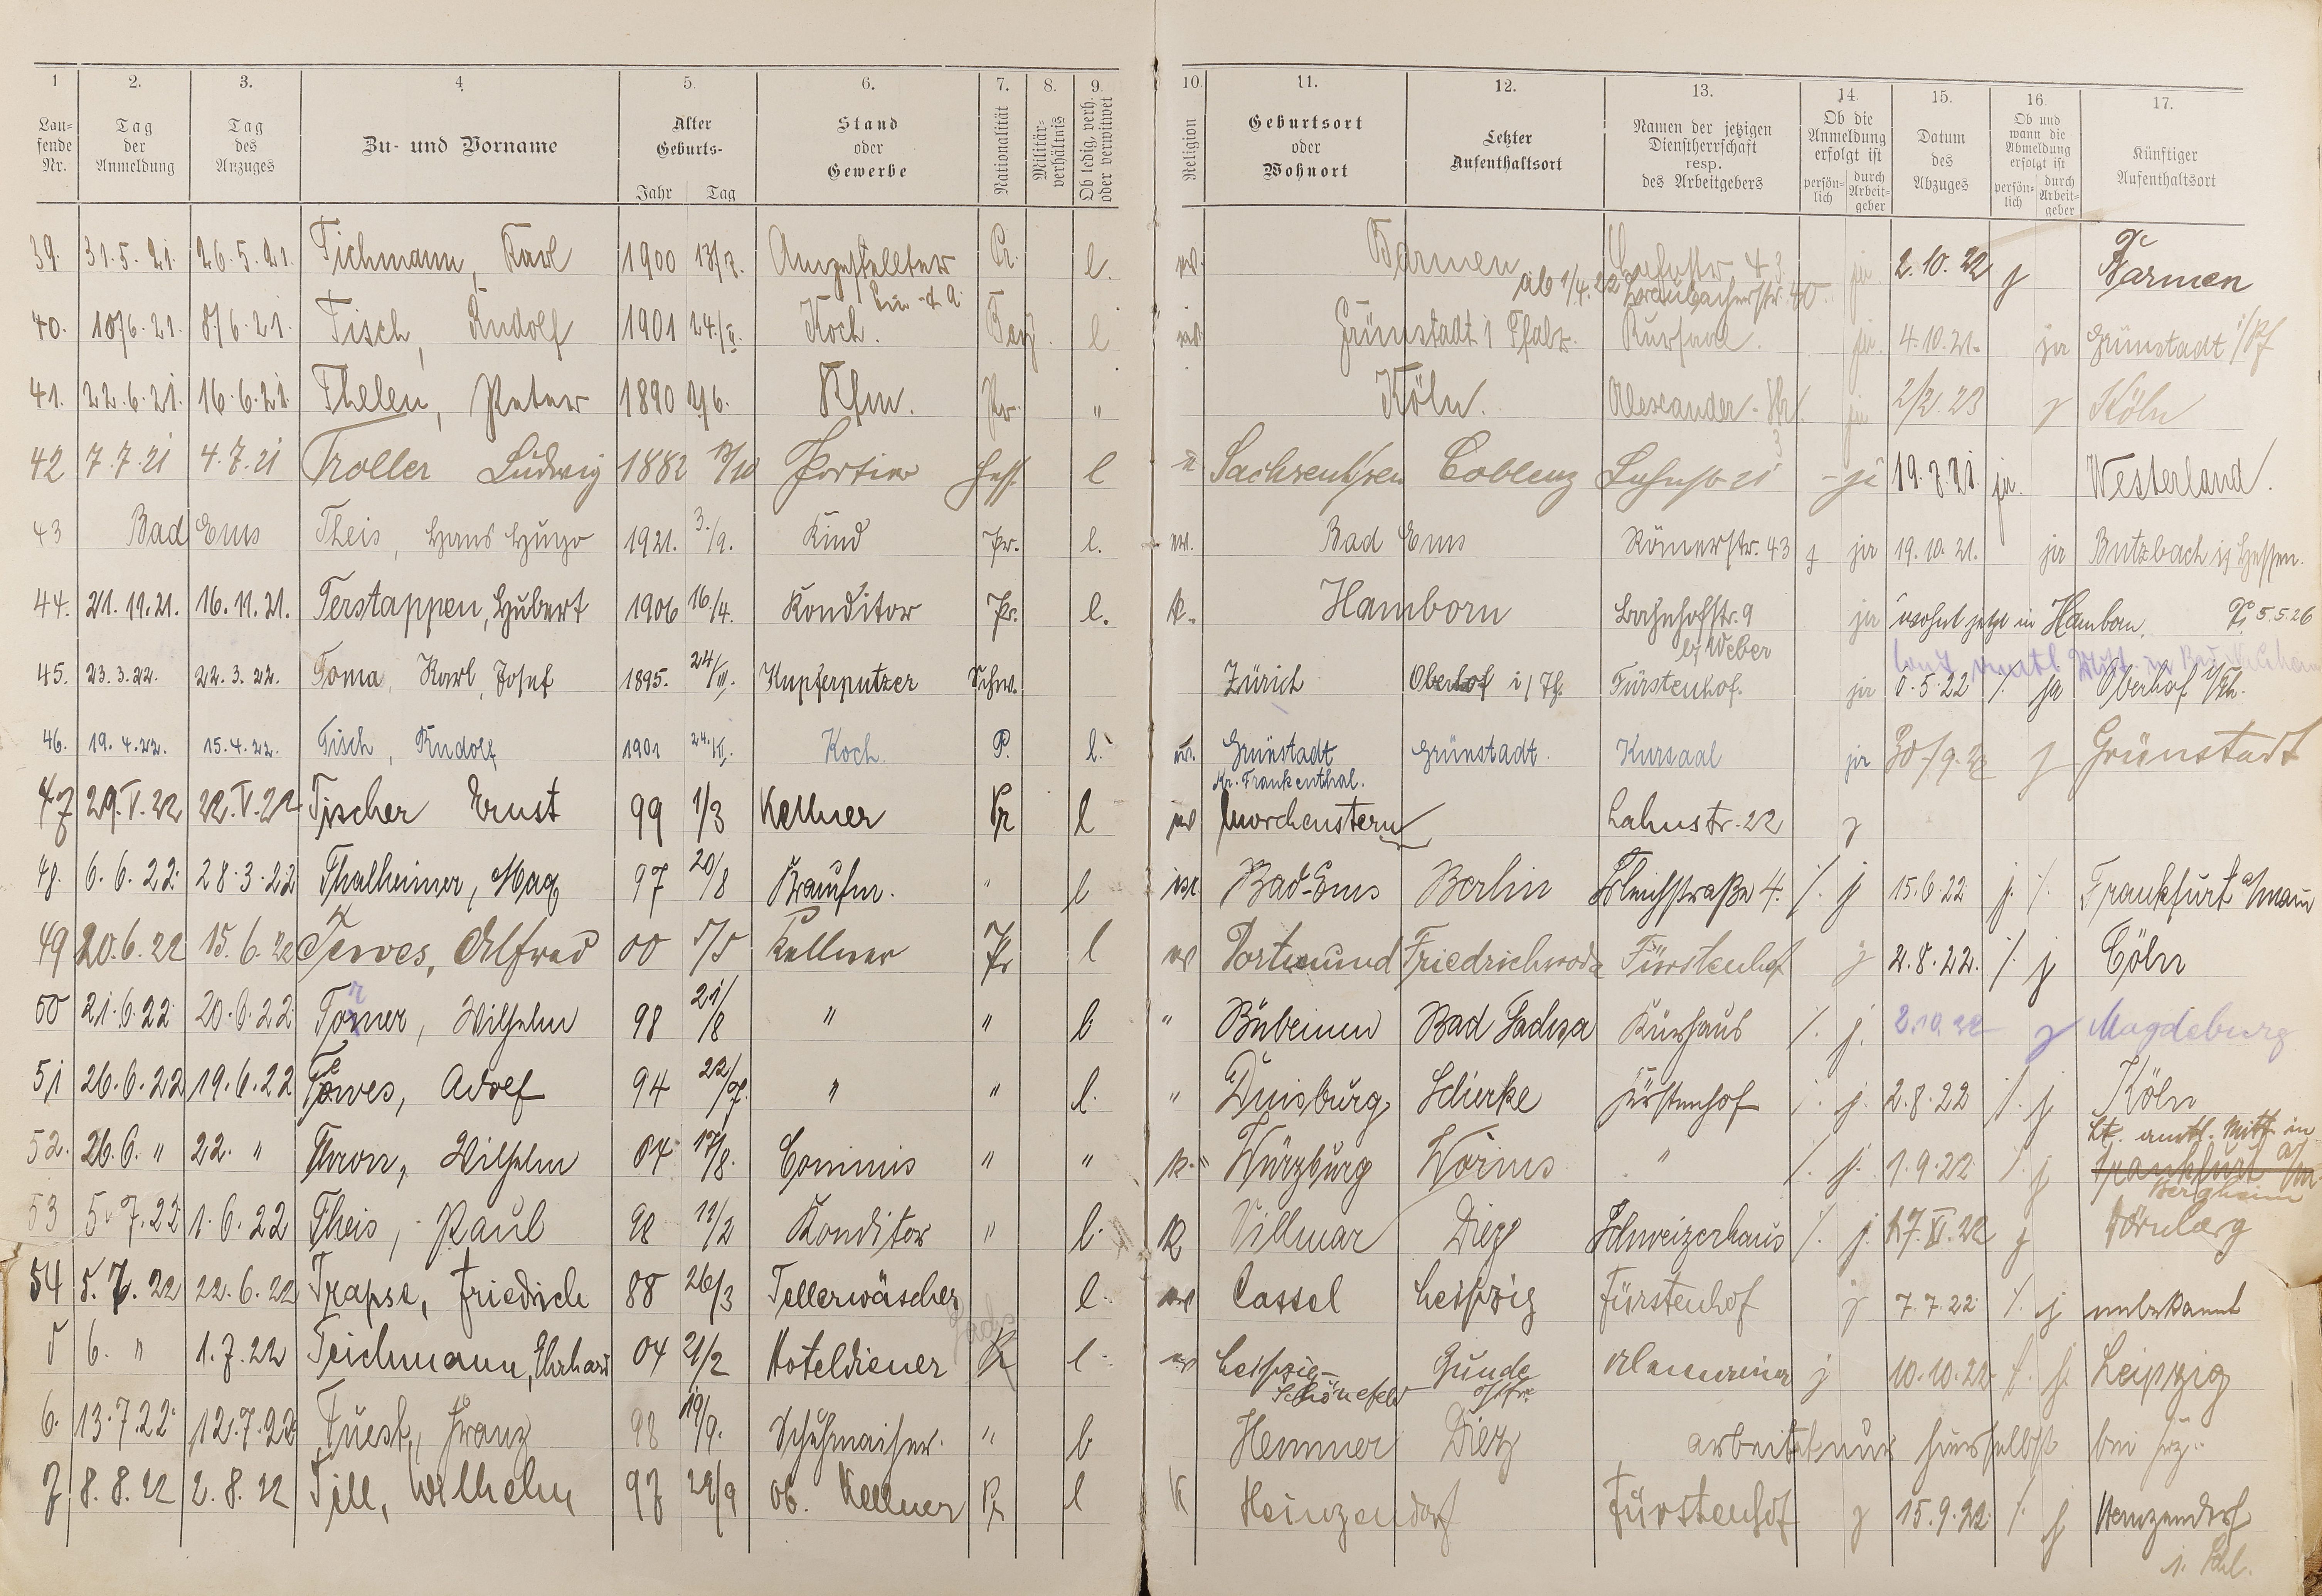 1 2. 3. 4 5. 6. 7. 8. 9. 10. 11. 12. 13. 14. 15. 16. 17.
Lau-fende Nr. Tag der Anmeldung Tag des Anzuges Zu- und Vorname Alter Geburts- Jahr Tag Stand oder Gewerbe Nationalität Militär-verhältnis Ob ledig, verh. oder verwitwet Religion Geburtsort oder Wohnort Letzter Aufenthaltsort Namen der jetzigen Dienstherrschaft resp. des Arbeitgebers Ob die Anmeldung erfolgt ist persön-lich durch Arbeit-geber Datum des Abzuges Ob und wann die Abmeldung erfolgt ist persön-lich durch Arbeit-geber Künftiger Aufenthaltsort
39. 31.5.21. 26.5.21. Tichmann, Karl 1900 Angestellter Pr. l. Barmen 2.10.22 j Barmen
ab 1/4.22 Graubacherstr. 40.
40. 10/6.21. 8/6.21. Tisch, Rudolf 1901 24./ Koch. Bay. l Grünstadt i Pfalz. Kursaal. ja. 4.10.21. ja Grünstadt i/Pf
41. 22.6.21. 16.6.21. Thelen, Peter 1890 Kfm. Pr. " Köln. Alexander-Str. 3 ja 2/2.23 j Köln
42 7.7.21 4.7.21 Troller Ludwig 1882 Portier Hess. l Coblenz Lahnstr 21 - ja 19.7.21. ja. Westerland.
43 Bad Ems Theis, Hans Hugo 1921. 3./9. Kind Pr. l. ev. Bad Ems Römerstr. 43 ja 19.10.21. ja Butzbach i/ Hessen.
44. 21.11.21. 16.11.21. Terstappen, Hubert 1906 16./4. Konditor Pr. l. k. Hamborn Bahnhofstr. 9 b/ Weber ja wohnt jetzt in Hamborn. 5.5.26
45. 23.3.22. 22.3.22. Toma, Karl, Josef 1895. 24/III. Kupferputzer Schw. Zürich Oberhof i/Th. Fürstenhof. ja 5.22 /. ja Oberhof i/Th.
46. 19.4.22. 15.4.22. Tisch, Rudolf 1901 24. Koch. P. l. ev. Grünstadt Kr. Frankenthal. Grünstadt. Kursaal ja 30/9.22 j Grünstadt
47 29.V.22 22.V.22 Tischer Ernst 99 1/3 Kellner Pr l ev Morchenstern Lahnstr. 22 j
48. 6.6.22. 28.3.22 Thalheimer, Max 97 20/8 Kaufm. " l isr. Bad-Ems Berlin Bleichstraße 4. /. j 15.6.22 j. /. Frankfurt a/Main
49 20.6.22 15.6.22 Tewes, Alfred 00 5/5 Kellner Pr l ev Dortmund Friedrichroda Fürstenhof j 2.8.22. /. j Cöln
50 21.6.22. 20.6.22. Tömer, Wilhelm 98 21/8 " " l " Bad Sachsa Kurhaus /. j. 2.10.22 j Magdeburg
51 26.6.22 19.6.22 Tewes, Adolf 94 22/ " " l. " Duisburg Schierke Fürstenhof /. j. 2.8.22 /. j Köln
52. 26.6. " 22. " Thron, Wilhelm 04 17/8. Commis " " k. Würzburg Worms " /. j. 1.9.22 /. j Lt. amtl. Mitt. in Frankfurt a/M Bergheim
53 5.7.22 1.6.22 Theis, Paul 98 11/2 Konditor " l. k Villmar Diez Schweizerhaus /. j. 17.XI.22 j
54 5.7.22 22.6.22 Trapse, Friedrich 88 26/3 Tellerwäscher l. ev Cassel Leipzig Fürstenhof j 7.7.22 /. j unbekannt
5 6. " 1.7.22 Teichmann, Ehrhard 04 21/2 Hoteldiener Sachs. l. ev Leipzig-Schönefeld j 10.10.22 /. j. Leipzig
6. 13.7.22. 12.7.22. Tuest, Franz 98 19/9. Schuhmacher. " l. Diez arbeitet nur hierselbst bei
7 8.8.22 2.8.22 Till, Wilhelm 97 29/9 Ob. Kellner Pr l K Heinzendorf Fürstenhof j 15.9.22. /. j Heinzendorf i. Schl.